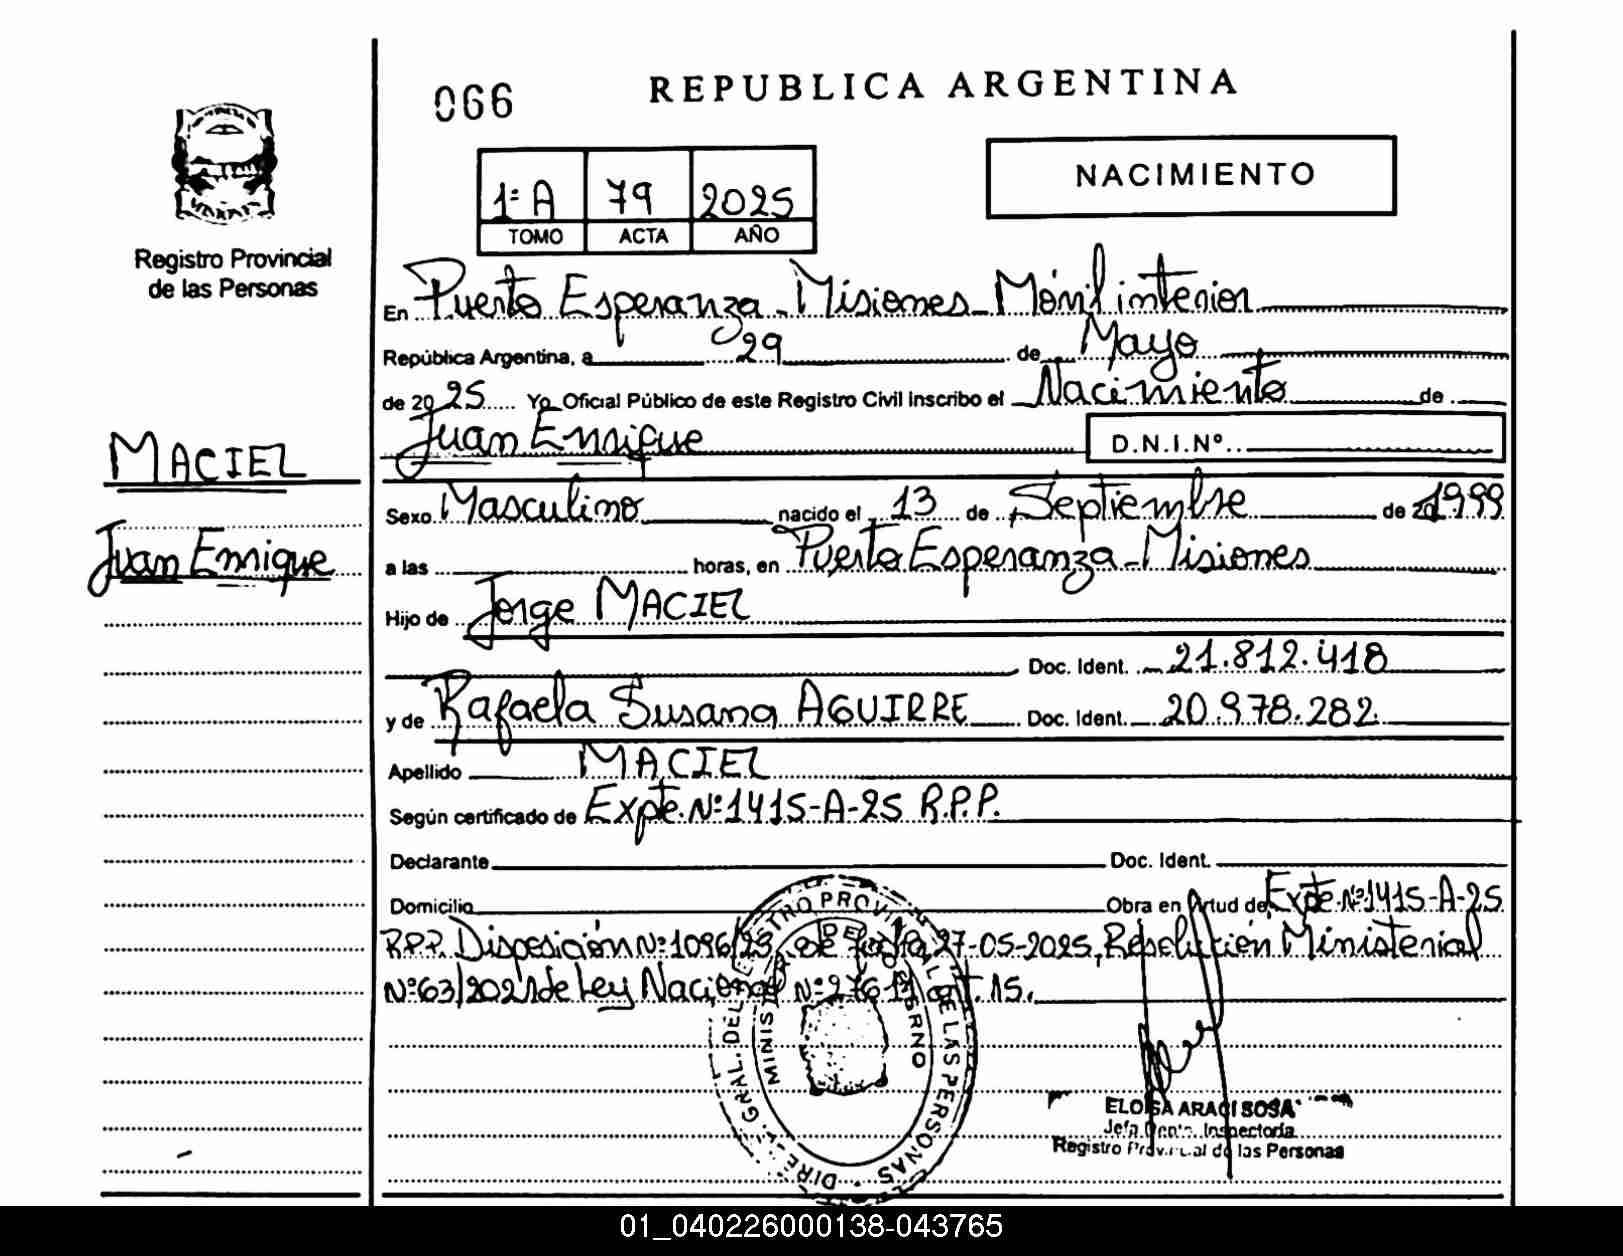 066
REPUBLICA ARGENTINA
1ª A 79 2025
TOMO ACTA AÑO
NACIMIENTO
Registro Provincial
de las Personas
En Puerto Esperanza - Misiones - Móvil interior
República Argentina, a 29 de Mayo
de 2025 Yo Oficial Público de este Registro Civil inscribo el Nacimiento de
Juan Enrique D.N.I.Nº
MACIEL
Juan Enrique
Sexo Masculino nacido el 13 de Septiembre de 1999
a las horas, en Puerto Esperanza - Misiones
Hijo de Jorge MACIEL
Doc. Ident. 21.812.418
y de Rafaela Susana AGUIRRE Doc. Ident. 20.978.282
Apellido MACIEL
Según certificado de Expte. Nº 1415-A-25 R.P.P.
Declarante Doc. Ident.
Domicilio Obra en virtud de Expte. Nº 1415-A-25
R.P.P. Disposición Nº 1096/25 de fecha 27-05-2025, Resolución Ministerial
Nº 63/2021 de Ley Nacional Art. 15.
DIREC. GRAL. DEL REGISTRO PROVINCIAL DE LAS PERSONAS
MINISTERIO DE GOBIERNO
ELOISA ARACI SOSA
Jefa Dpto. Inspectoría
Registro Provincial de las Personas
01_040226000138-043765